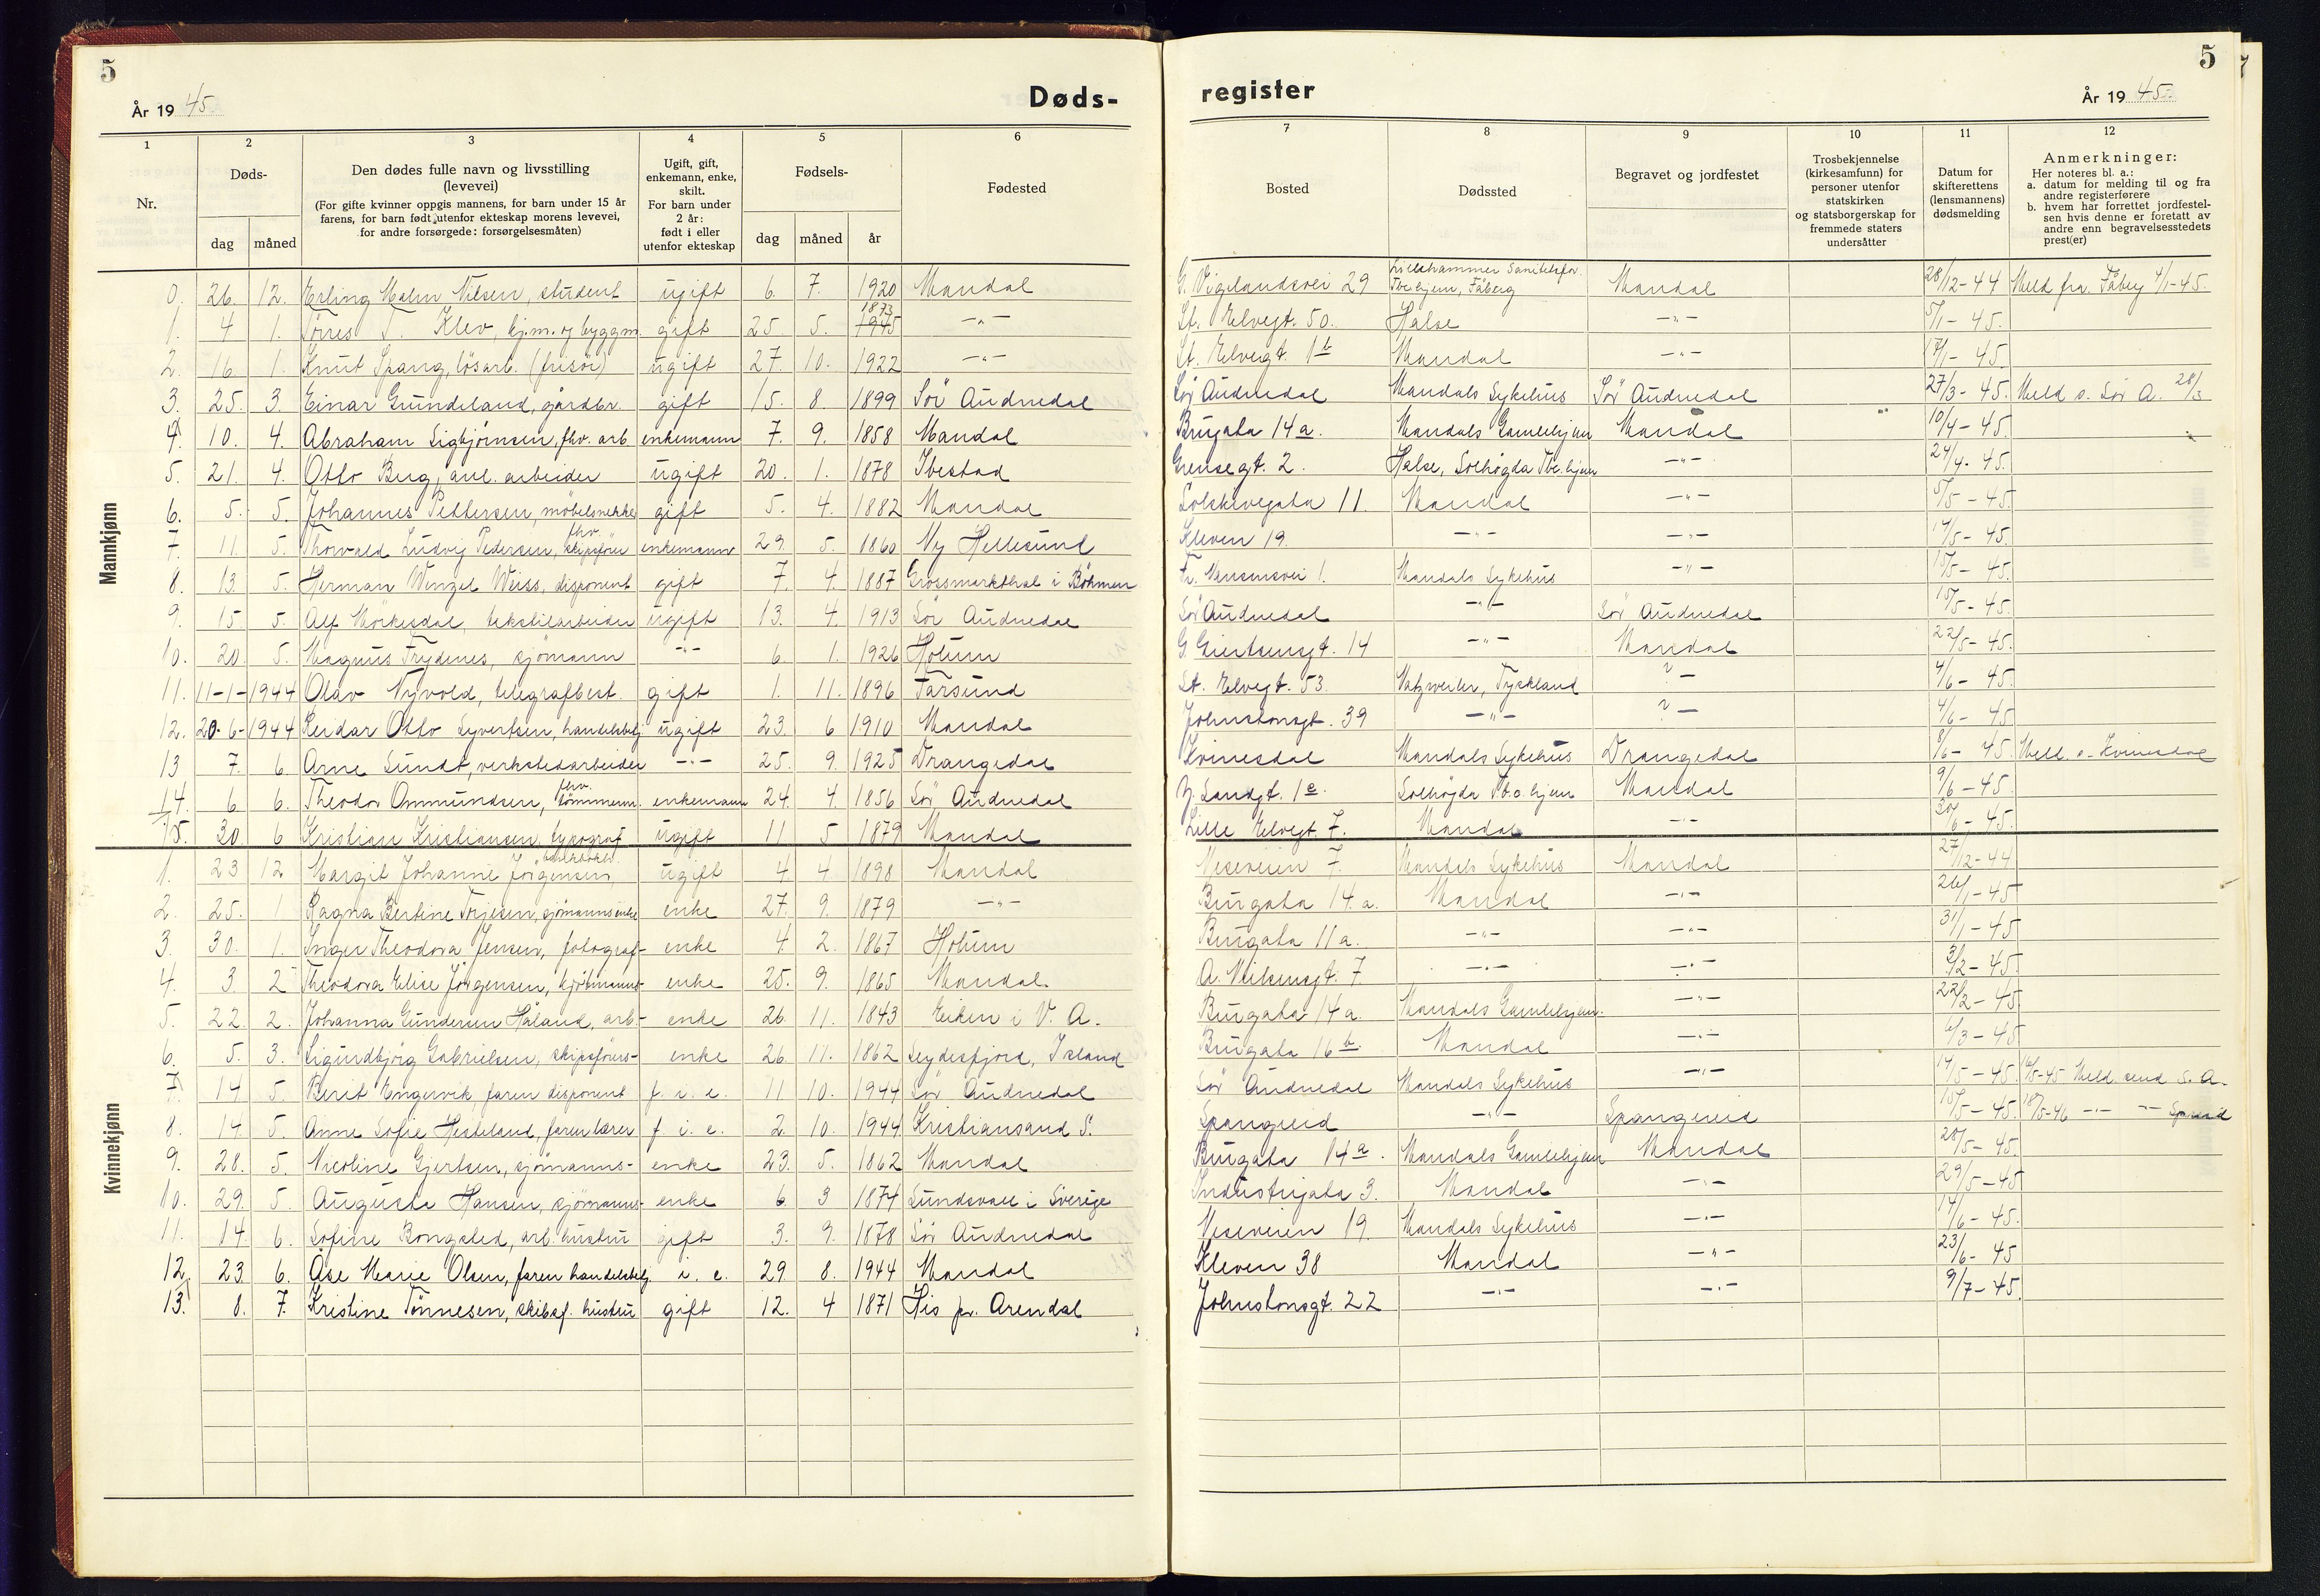 5
År 1945.
Døds-
register
År 1945.
5
1
2
3
4
5
6
7
8
9
10
11
12
Nr.
Døds-
dag
måned
Den dødes fulle navn og livsstilling
(levevei)
(For gifte kvinner oppgis mannens, for barn under 15 år
farens, for barn født utenfor ekteskap morens levevei,
for andre forsørgede: forsørgelsesmåten)
Ugift, gift,
enkemann, enke,
skilt.
For barn under
2 år:
født i eller
utenfor ekteskap
Fødsels-
dag
måned
år
Fødested
Bosted
Dødssted
Begravet og jordfestet
Trosbekjennelse
(kirkesamfunn) for
personer utenfor
statskirken
og statsborgerskap for
fremmede staters
undersåtter
Datum for
skifterettens
(lensmannens)
dødsmelding
Anmerkninger:
Her noteres bl. a.:
a. datum for melding til og fra
andre registerførere
b. hvem har forrettet jordfestel-
sen hvis denne er foretatt av
andre enn begravelsesstedets
prest(er)
Mannkjønn
0. 26. 12. Erling Malm Nilsen, student ugift 6. 7. 1920 Mandal G. Vigelandsvei 29 Lillehammer Sanitetsfor. Tbc.hjem, Fåberg Mandal 28/12-44 Meld fra Fåberg 4/1-45.
1. 4 1. Tønes T. Klev, kj.m. og byggm. gift 25. 5. 1873 1945 -"- St. Elvegt. 50. Halse -"- 5/1-45.
2. 16 1. Knut Spang, løsarb. (frisør) ugift 27. 10. 1922 -"- St. Elvegt. 1b Mandal -"- 17/1-45.
3. 25. 3. Einar Grundeland, gårdbr. gift 15. 8 1899 Sør Audnedal Sør Audnedal Mandals Sykehus Sør Audnedal 27/3-45. Meld s. Sør A. 28/3
4. 10. 4. Abraham Sigbjørnsen, fhv. arb enkemann 7. 9. 1858 Mandal Brugata 14a. Mandals Gamlehjem Mandal 10/4-45.
5. 21. 4. Otto Berg, anl. arbeider ugift 20. 1. 1878 Ibestad Grensegt. 2. Halse, Solhøgda Tbc. hjem -"- 24/4-45.
6. 5. 5. Johannes Pettersen, møbelsnekker gift 5. 4. 1882 Mandal Solskivegata 11. Mandal -"- 5/5-45.
7. 11. 5. Thorvald Ludvig Pedersen, fhv. skipsfører enkemann 29. 5. 1860 Ny Hellesund Kleven 19. -"- -"- 14/5-45.
8. 13. 5. Herman Wenzel Weiss, disponent gift 7. 4. 1887 Grossmarkthal i Bøhmen Fr. Nansensvei 1. Mandals Sykehus -"- 15/5-45.
9. 15. 5. Alf Mørkesdal, tekstilarbeider ugift 13. 4. 1913 Sør Audnedal Sør Audnedal -"- Sør Audnedal 15/5-45.
10. 20. 5. Magnus Frydenes, sjømann -"- 6. 1. 1926 Holum G. Giertsensgt. 14 -"- Mandal 22/5-45.
11. 11-1-1944 Olav Nyvold, telegrafbest. gift 1. 11. 1896 Farsund St. Elvegt. 53. Natzweiler, Tyskland ?- 4/6-45.
12. 20-6-1944 Reidar Otto Syvertsen, handelsbetj. ugift 23. 6 1910 Mandal Johnstonsgt. 39 -"- ?- 4/6-45
13 7. 6 Arne Sundt, verkstedarbeider -"- 25. 9. 1925 Drangedal Kvinesdal Mandals Sykehus Drangedal 8/6-45 Meld. s. Kvinesdal
14. 6. 6. Theodor Ommundsen, fhv. tømmerm. enkemann 24. 4. 1856 Sør Audnedal Sandgt. 1e. Solhøgda Tb.c. hjem Mandal 9/6-45.
15. 30. 6 Kristian Kristiansen, typograf ugift 11 5 1879 Mandal Lille Elvegt. 7. Mandal -"- 30/6-45.
Kvinnekjønn
1. 23 12 Margit Johanne Jørgensen, ugift 4. 4 1898 Mandal Neseveien 7. Mandals Sykehus Mandal 27/12-44
2. 25. 1 Ragna Bertine Terjesen, sjømannsenke enke 27. 9. 1879 -"- Brugata 14.a. Mandal -"- 26/1-45
3. 30. 1. Inger Theodora Jensen, fotograf- enke 4 2. 1867 Holum Brugata 11a. -"- -"- 31/1-45
4. 3. 2 Theodora Elise Jørgensen, kjøbmanns- enke 25. 9. 1865 Mandal. A. Nilsensgt. 7. -"- -"- 3/2-45.
5. 22. 2. Johanna Gundersen Håland, arb.- enke 26. 11. 1843 Eiken i V. A. Brugata 14a. Mandals Gamlehjem. -"- 22/2-45
6. 5. 3. Sigundbjørg Gabrielsen, skipsførers- enke 26. 11. 1862 Seydesfjord, Island Brugata 16b. Mandal -"- 6/3-45
7. 14 5. Berit Engervik, faren disponent f. i. e. 11 10. 1944 Sør Audnedal Sør Audnedal Mandals Sykehus -"- 14/5-45 16/5-45 Meld. send S. A.
8. 14. 5. Anne Sofie Hesteland, faren lærer f i. e. 2. 10. 1944 Kristiansand S. Spangereid -"- Spangereid 15/5-45. 18/5-46 -"- -"-
9. 28. 5. Nicoline Gjertsen, sjømanns- enke 23. 5. 1862 Mandal Brugata 14a. Mandals Gamlehjem Mandal 28/5-45.
10. 29. 5 Augusta Hansen, sjømanns- enke 6. 3 1874 Sundsvall i Sverige Industrigata 3. Mandal -"- 29/5-45
11. 14. 6. Sofine Rongsted, arb. hustru gift 3. 9. 1878 Sør Audnedal Neseveien 19. Mandals Sykehus -"- 14/6-45.
12. 23. 6. Åse Marie Olsen, faren handelsbetj. i. e. 29. 8. 1944 Mandal Kleven 38 Mandal -"- 23/6-45
13. 8. 7. Kristine Tønnesen, skibsf. hustru gift 12. 4 1871 His pr. Arendal Johnstonsgt. 22 -"- -"- 9/7-45.